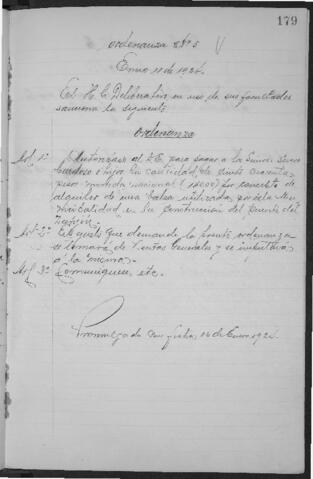 179
ordenanza Nº 5
Enero 11 de 1924.
El H. C. Deliberativo en uso de sus facultades
sanciona la siguiente
ordenanza
Art. 1º Autorízase al D.E. para pagar a la
e hijos la cantidad de
pesos moneda nacional por concepto de
alquiler de una balsa utilizada por la Mu-
nicipalidad en la construcción del puente del
Art. 2º El gasto que demande la presente ordenanza
se tomará de Rentas Generales y se imputará
a la misma.
Art. 3º Comuníquese, etc.
Promulgada con fecha, 16 de Enero 1924.